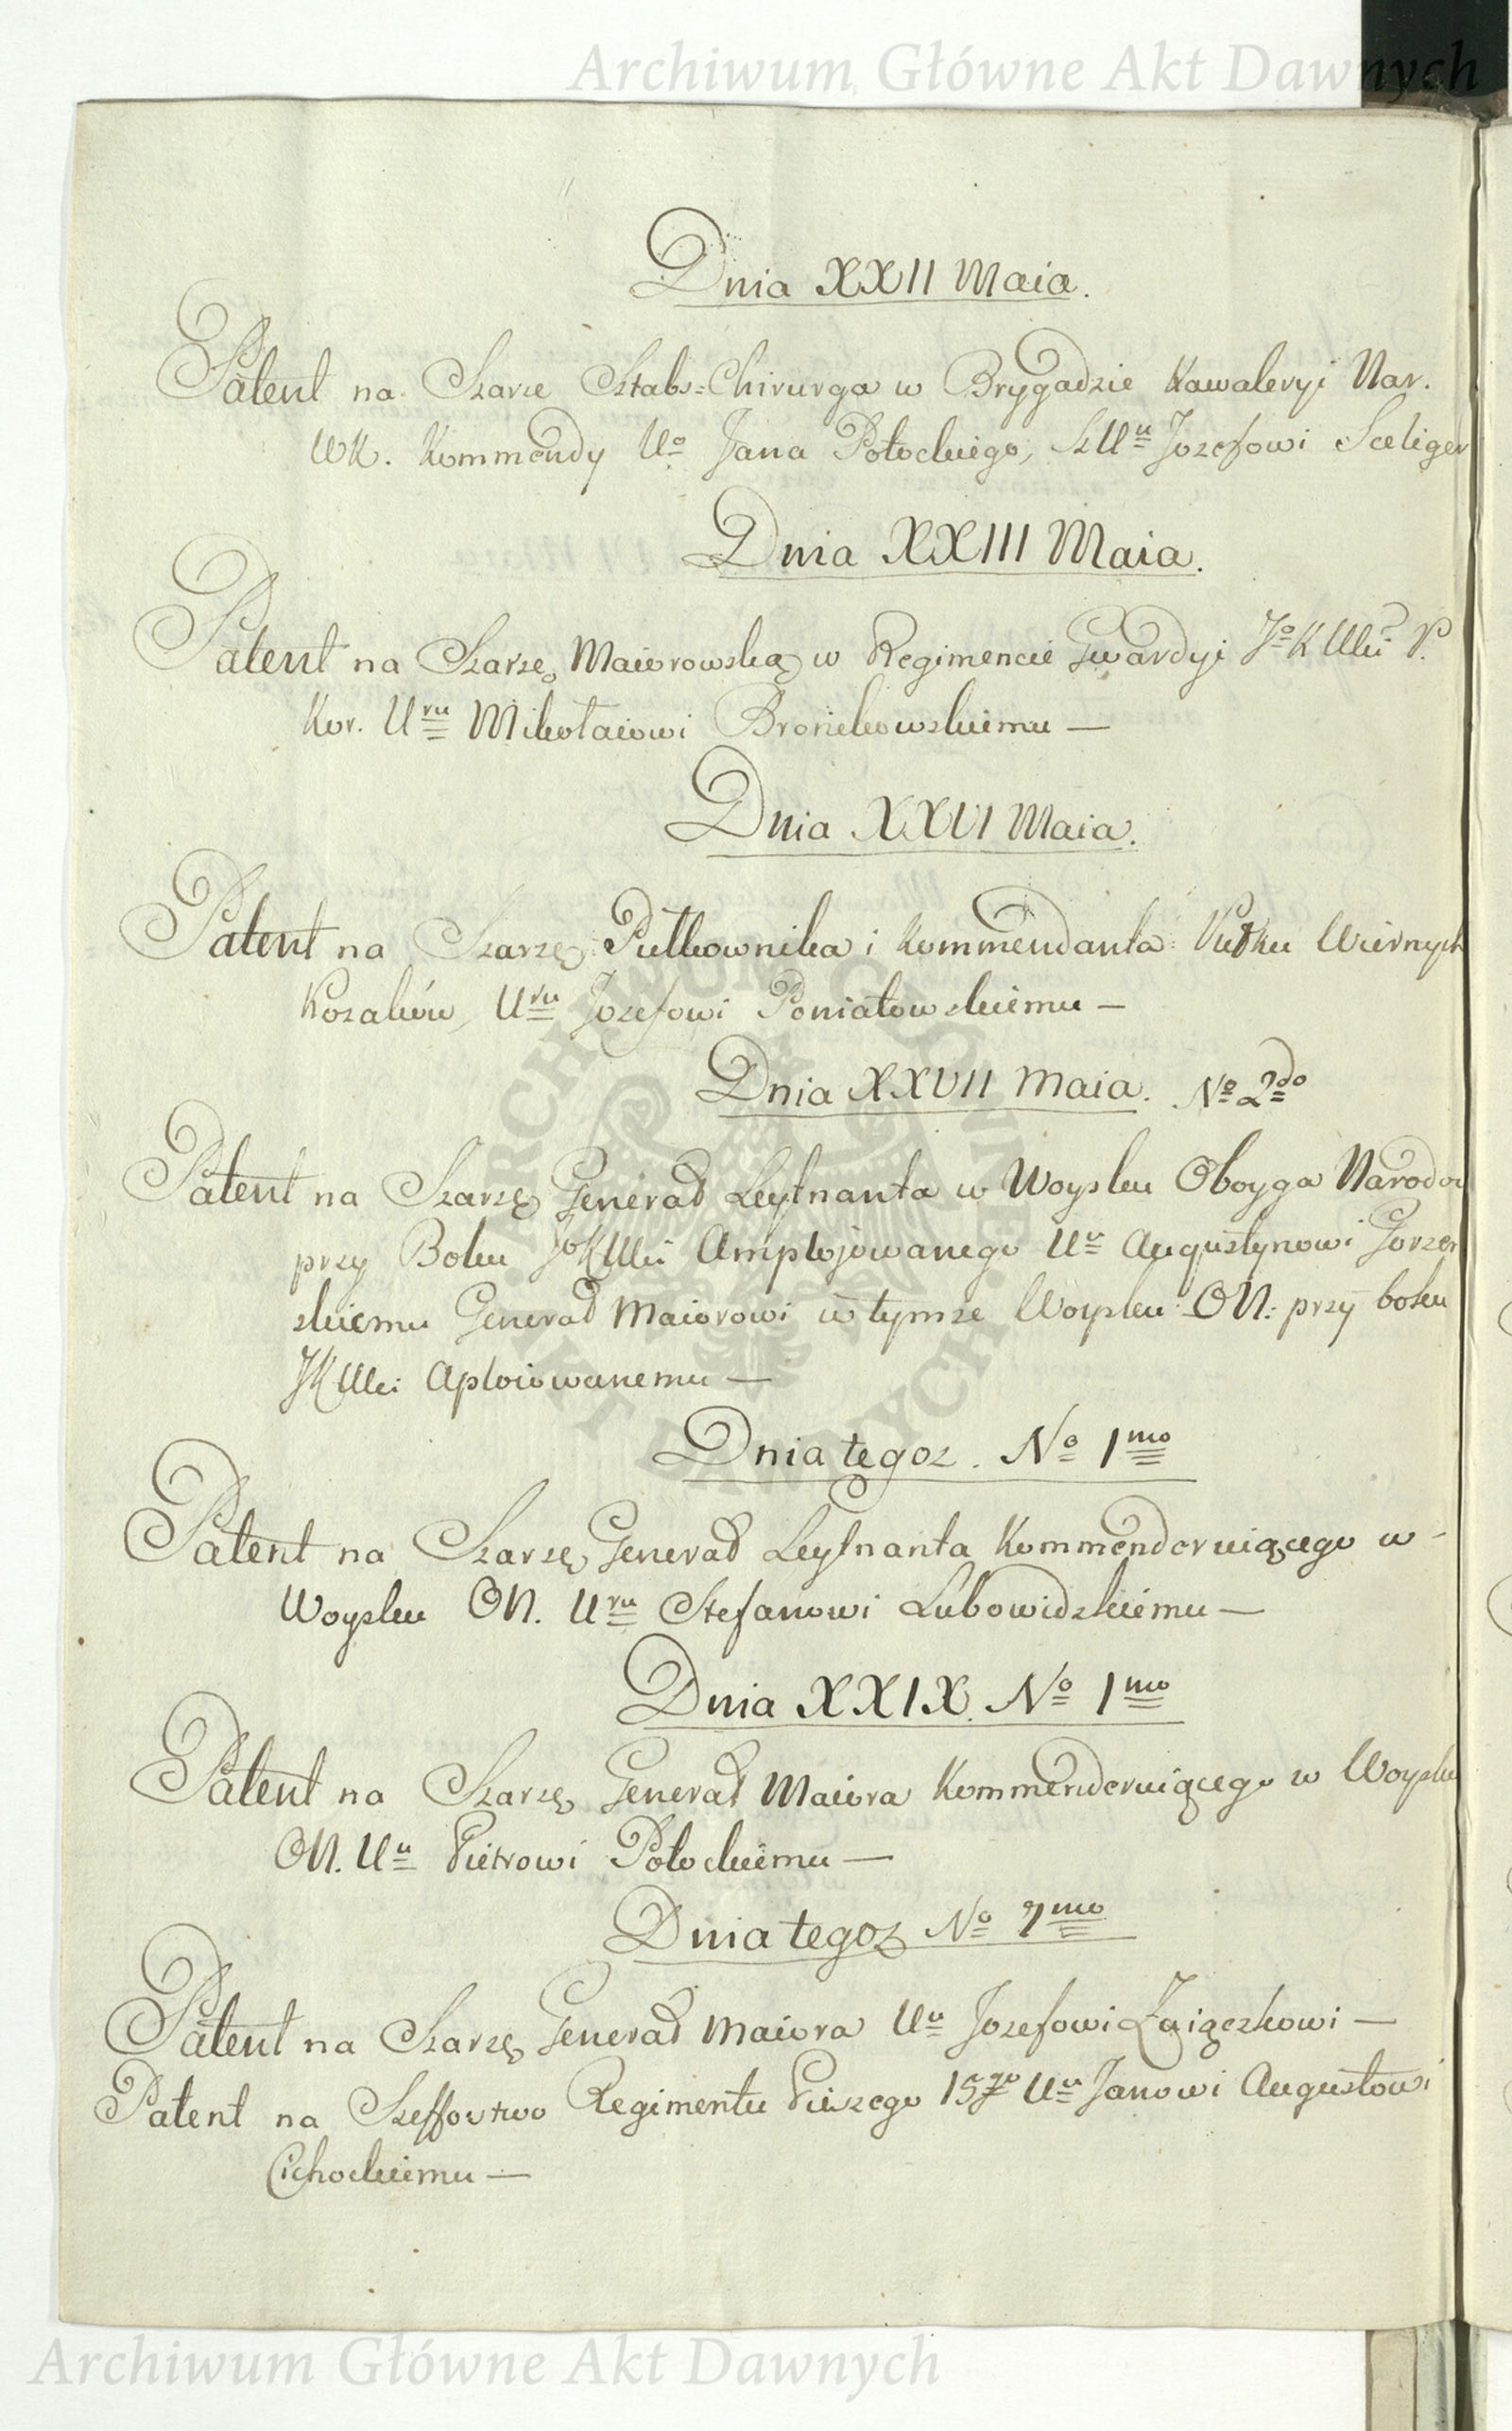 Archiwum Główne Akt Dawnych
Dnia XXII Maia.
Patent na Szarże Sztabs=Chirurga w Brygadzie Kawaleryi Nar.
WK. Kommendy Uo Jana Potockiego, SzUu Jozefowi Seeliger
Dnia XXIII Maia.
Patent na Szarżę Maiorowską w Regimencie Gwardyi JoKMci P.
Kor. Uru Mikołaiowi Bronikowskiemu —
Dnia XXVI Maia.
Patent na Szarżę Pułkownika i Kommendanta Pułku Wiernych
Kozaków, Uru Jozefowi Poniatowskiemu —
Dnia XXVII Maia. No 2do
Patent na Szarżę Generał Leytnanta w Woysku Oboyga Narodow
przy Boku JoKMci Amplojowanego Uu Augustynowi Gorzeń
skiemu Generał Maiorowi w tymże Woysku ON: przy boku
JKMci Aploiowanemu —
Dnia tegoż. No 1mo
Patent na Szarżę Generał Leytnanta Kommenderuiącego w
Woysku ON. Uru Stefanowi Lubowidzkiemu —
Dnia XXIX. No 1mo
Patent na Szarżę Generał Maiora Kommenderuiącego w Woysku
ON. Uu Pietrowi Potockiemu —
Dnia tegoż No 7mo
Patent na Szarżę Generał Maiora Uu Jozefowi Zaiączkowi —
Patent na Szeffowtwo Regimentu Pieszego 15go Uu Janowi Augustowi
Cichockiemu —
Archiwum Główne Akt Dawnych
ARCHIWUM GŁÓWNE AKT DAWNYCH